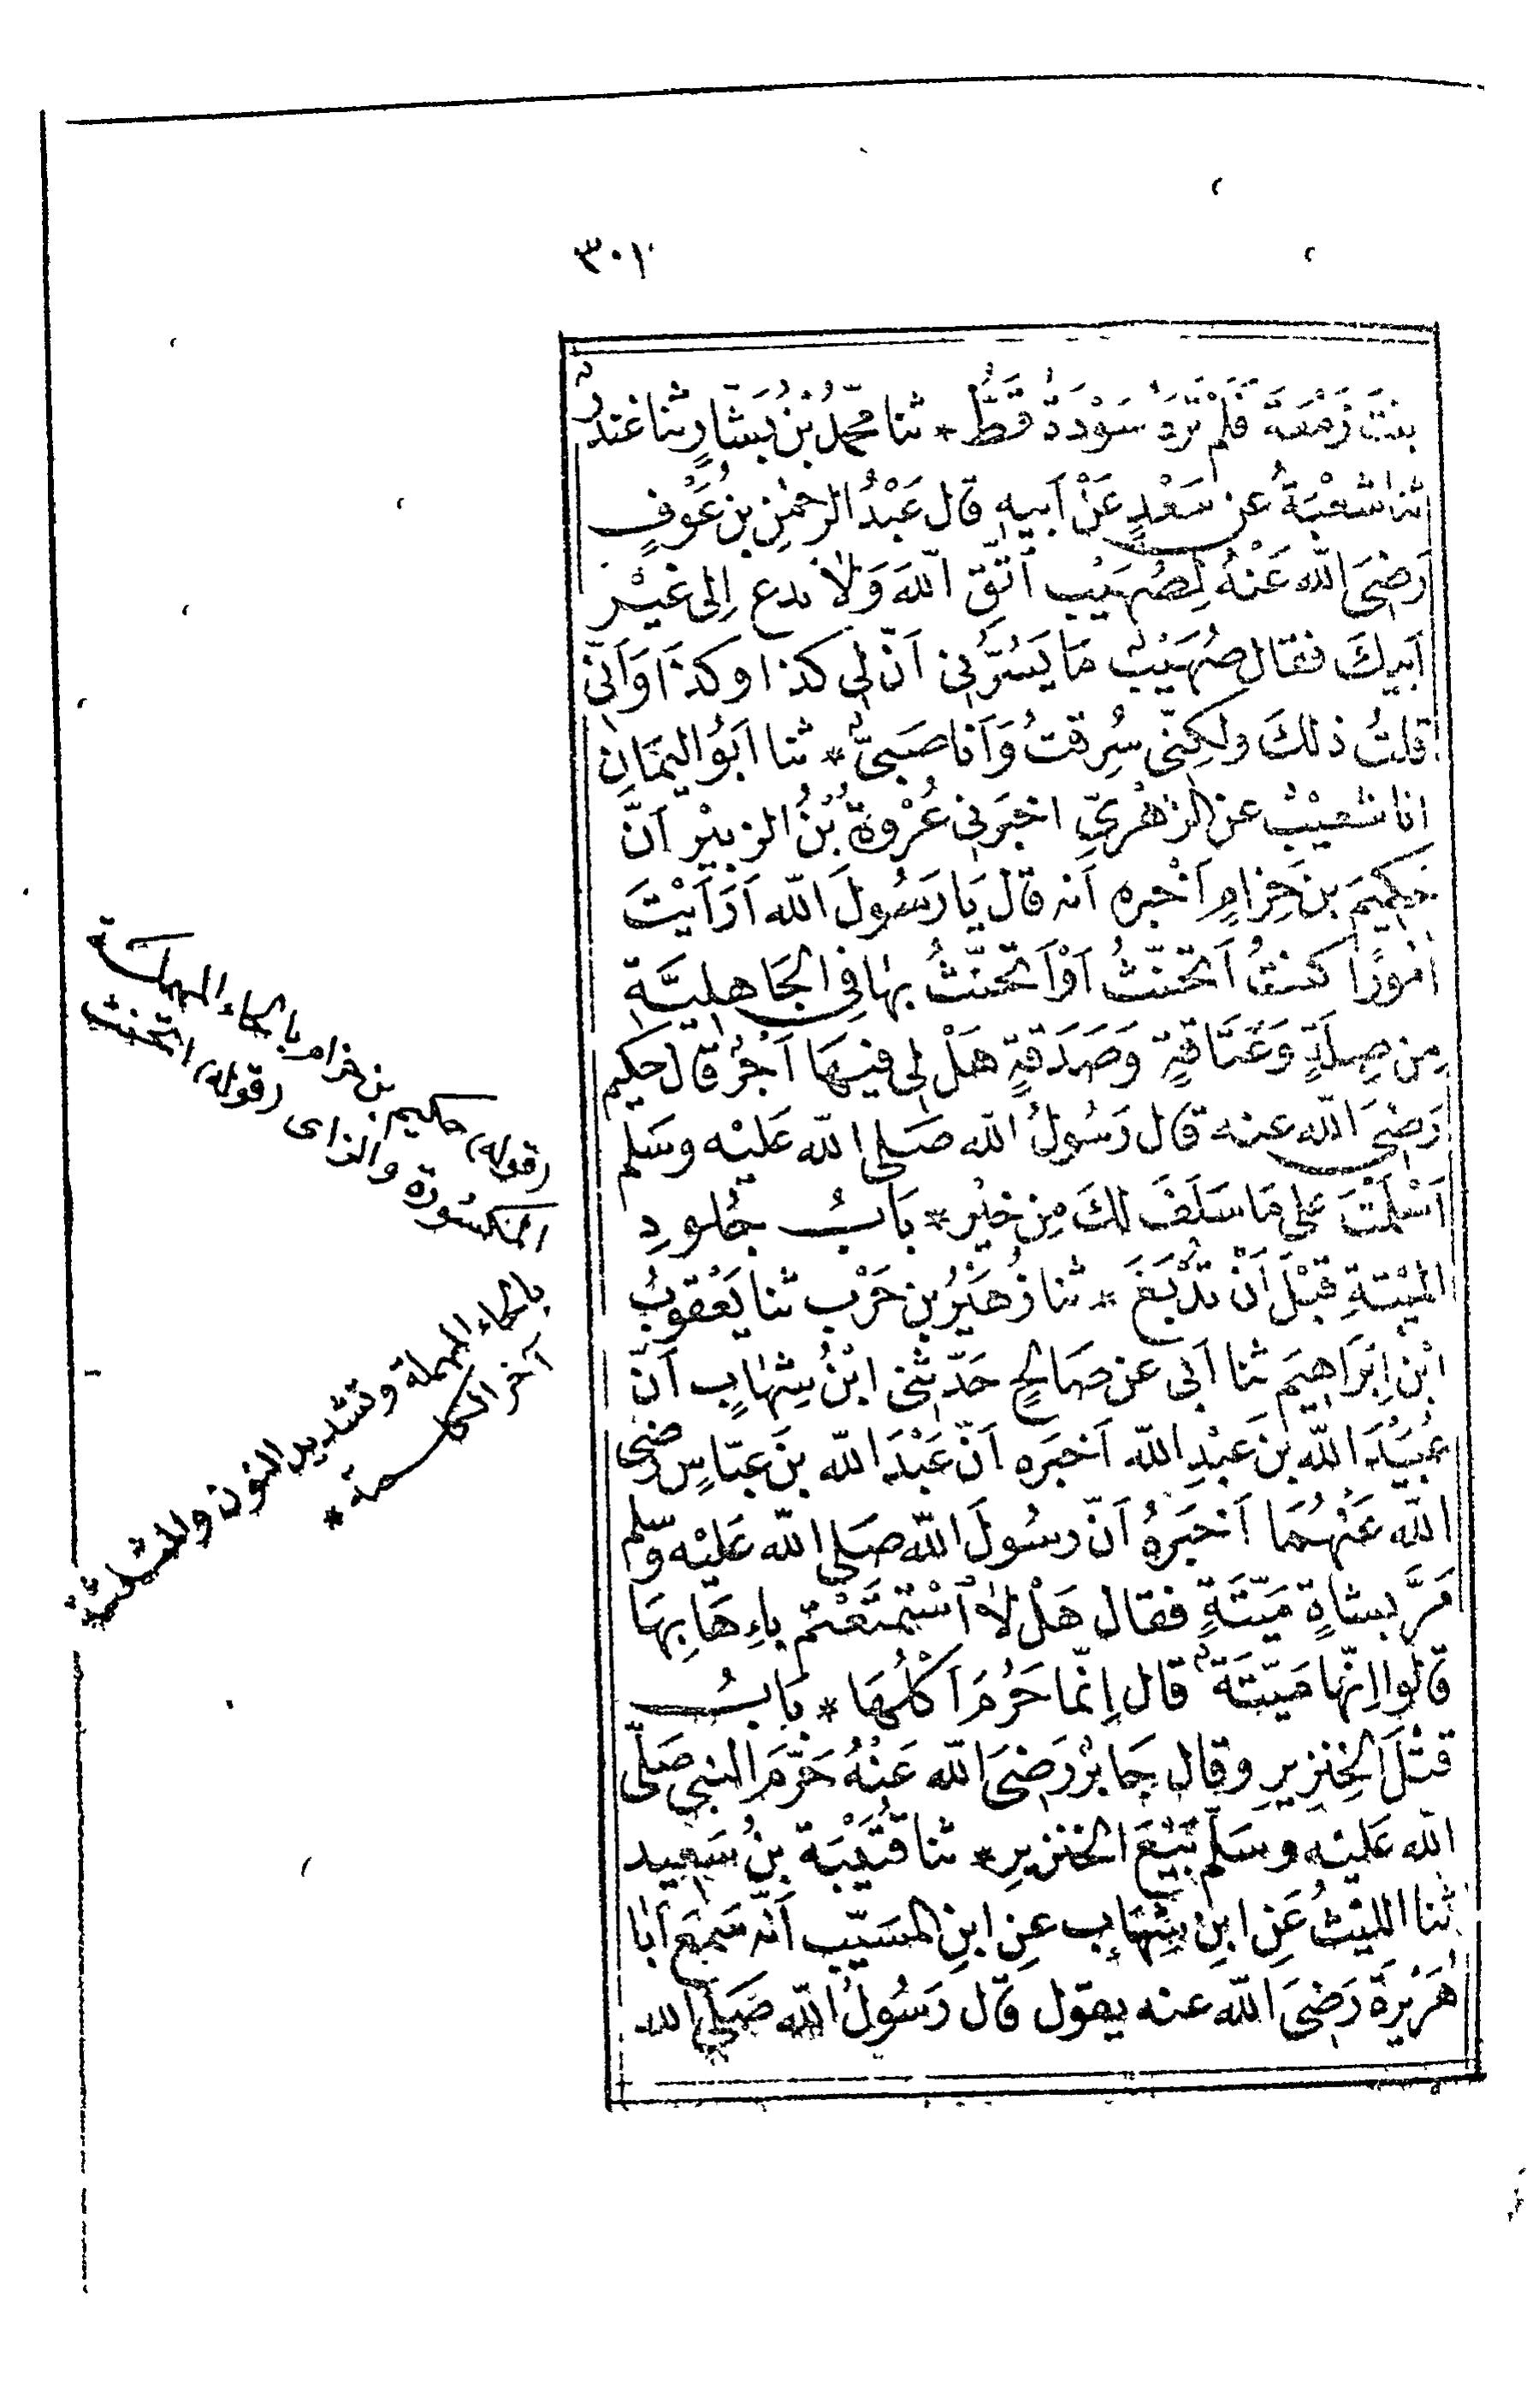 ٣٠١
بِنْتَ زَمْعَةَ فَلَمْ تَرَهُ سَوْدَةُ قَطُّ * ثنا مُحَمَّدُ بْنُ بَشَّارٍ ثنا غُنْدَرٌ
ثنا شُعْبَةُ عن سَعْدٍ عَنْ اَبيهِ قال عَبْدُ الرحمٰنِ بنُ عَوْفٍ
رَضِىَ اللّه عَنْهُ لِصُهَيْبٍ اتَّقِ اللّهَ وَلَا تدع اِلى غَيْرِ
اَبيكَ فقال صُهَيْبٌ مَا يَسُرُّنِى اَنّ لِى كذا وكذَا وَاَنّى
قلتُ ذلكَ ولكِنّى سُرِقتُ وَاَنا صَبِىٌّ * ثنا اَبُو اليَمَانِ
انا شعيْبٌ عن الزهْرِىِّ اخبَرنى عُرْوَةُ بْنُ الزبيْرِ اَنَّ
حَكِيْمَ بن حِزامٍ اَخْبره اَنه قال يَا رَسُولَ اللّه اَرَاَيْتَ
اُمُورًا كنتُ اَتحَنَّثُ اَوْ اَتحَنَّتُ بهَا فى الجَاهِليَّةِ
مِن صِلَةٍ وَعَتَاقَةٍ وَصَدَقَةٍ هَلْ لِى فيهَا اَجْرٌ قال حكيم
رَضِىَ اللّه عنه قال رَسُولُ اللّه صَلى اللّه عَليْه وسَلم
اَسْلَمْتَ عَلى مَا سَلَفَ لكَ مِن خيْر * بَابُ جُلودِ
الميْتَةِ قبْلَ اَنْ تُدْبَغَ * ثنا زُهَيْرُ بن حَرْب ثنا يَعْقوبُ
ابْن اِبْرَاهِيمَ ثنا اَبى عن صَالحٍ حَدّثنِى ابْنُ شِهَابٍ اَنّ
عُبَيْدَ اللّه بنَ عَبْدِ اللّه اَخبَره اَنّ عَبْدَ اللّه بنَ عبّاسٍ رضى
اللّه عَنْهُمَا اَخبَرَهُ اَنّ رسُولَ اللّه صَلى اللّه عَليْه وسلم
مَرَّ بشاةٍ مَيِّتَةٍ فقال هَلْلَا اسْتَمتَعْتم باِهَابِهَا
قالوا اِنّهَا مَيّتَةٌ قال اِنّما حَرُمَ اَكْلُهَا * بَابُ
قَتْلِ الخِنزِيرِ وقال جَابرٌ رَضىَ اللّه عَنْهُ حَرَّمَ النبى صَلّى
اللّه عَليْه وسَلّم بَيْعَ الخنزيرِ * ثنا قُتَيْبَة بنُ سَعِيد
ثنا الليْثُ عَنِ ابنِ شِهَابٍ عنِ ابنِ المسَيّب اَنّه سَمِعَ اَبَا
هُرَيْرَةَ رَضىَ اللّه عنه يقول قال رَسُولُ اللّه صَلى اللّه
(قوله) حكيم بن حزام بالحاء المهملة
المكسورة والزاى (قوله) اتحنث
بالحاء المهملة وتشديد النون والمثلثة
آخر الكلمة *